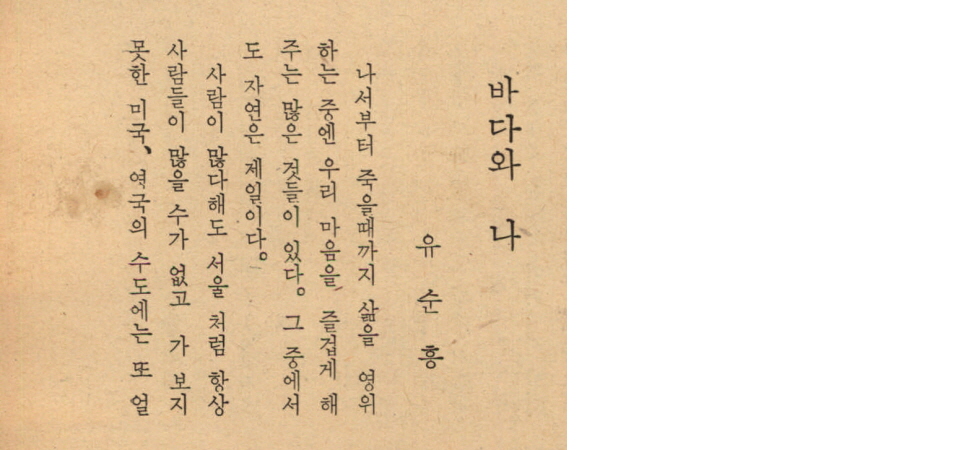 바다와 나
유순흥
나서부터 죽을때까지 삶을 영위
하는 중엔 우리 마음을 즐겁게 해
주는 많은 것들이 있다. 그 중에서
도 자연은 제일이다.
사람이 많다해도 서울 처럼 항상
사람들이 많을 수가 없고 가 보지
못한 미국、영국의 수도에는 또 얼